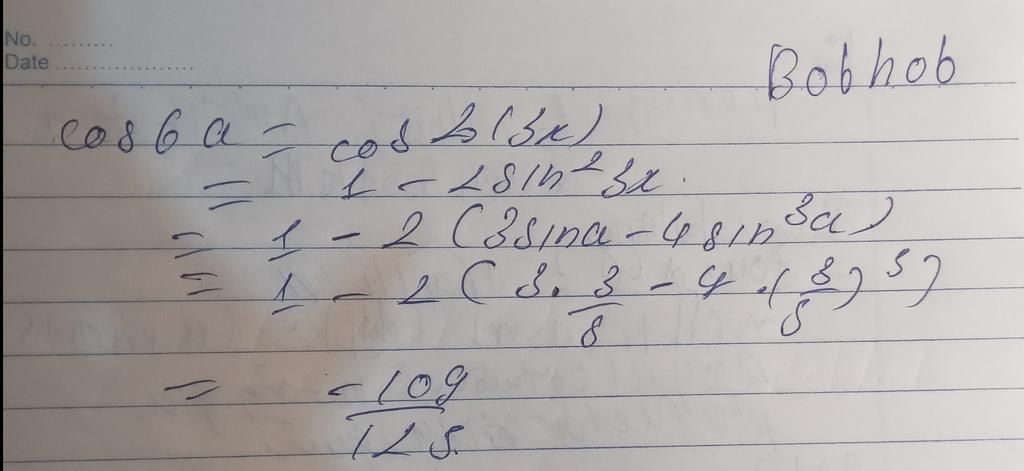 No. .........
Date ...................
Bobhob
cos 6a = cos 2(3x)
= 1 - 2sin²3x.
= 1 - 2 (3sina - 4sin³a)
= 1 - 2 (3. 3/5 - 4 .(3/5)³)
= -109/125.